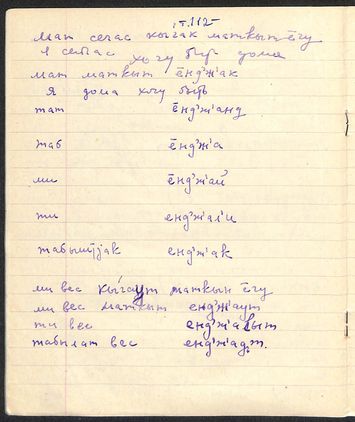 т.112
мат сечас кыгак маткын ēгу
я сейчас хочу быт дома
мат маткыт ēнд'ж'ак
я дома хочу быть
тат ēнд'ж'анд
таб ēнд'ж'а
ми ēнд'ж'ай
ти енд'ж'ал'и
табыштjак енд'ж'ак
ми вес кыгаут маткын ēгу
ми вес маткыт енд'ж'аут
ти вес енд'ж'алыт
табылат вес енд'ж'адт.